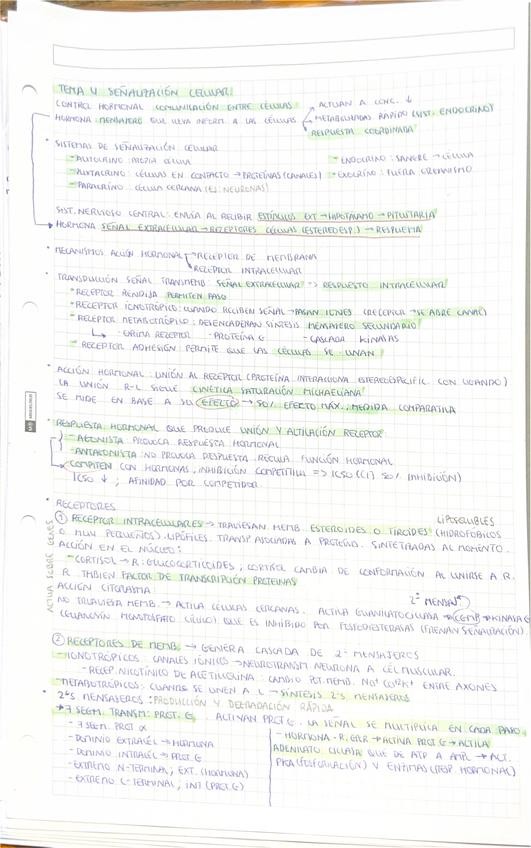 TEMA 4 SEÑALIZACIÓN CELULAR
CONTROL HORMONAL COMUNICACIÓN ENTRE CÉLULAS → ACTUAN A CONC. ↓
HORMONA: MENSAJERO QUE LLEVA INFORM. A LAS CÉLULAS → METABOLIZADAS RÁPIDO (SIST. ENDOCRINO)
RESPUESTA COORDINADA
SISTEMAS DE SEÑALIZACIÓN CELULAR
- AUTOCRINO: PROPIA CÉLULA - ENDOCRINO: SANGRE → CÉLULA
- YUXTACRINO: CÉLULAS EN CONTACTO → PROTEÍNAS (CANALES) - EXOCRINO: FUERA ORGANISMO
- PARACRINO: CÉLULA CERCANA (EJ: NEURONAS)
SIST. NERVIOSO CENTRAL: ENVÍA AL RECIBIR ESTÍMULOS EXT → HIPOTÁLAMO → PITUITARIA
HORMONA SEÑAL EXTRACELULAR → RECEPTORES CÉLULAS (ESTEREOESP.) → RESPUESTA
· MECANISMOS ACCIÓN HORMONAL → RECEPTOR DE MEMBRANA
RECEPTOR INTRACELULAR
· TRANSDUCCIÓN SEÑAL TRANSMEMB: SEÑAL EXTRACELULAR => RESPUESTA INTRACELULAR
- RECEPTOR RENDIJA PERMITEN PASO
- RECEPTOR IONOTRÓPICO: CUANDO RECIBEN SEÑAL → PASAN IONES (RECEPTOR → SE ABRE CANAL)
- RECEPTOR METABOTRÓPICO: DESENCADENAN SÍNTESIS MENSAJERO SECUNDARIO
↳ - ENZIMA RECEPTOR - PROTEÍNA G - CASCADA KINASAS
- RECEPTOR ADHESIÓN: PERMITE QUE LAS CÉLULAS SE UNAN
· ACCIÓN HORMONAL: UNIÓN AL RECEPTOR (PROTEÍNA INTERACCIONA ESTEREOESPECÍFIC. CON LIGANDO)
LA UNIÓN R-L SIGUE CINÉTICA SATURACIÓN MICHAELIANA
SE MIDE EN BASE A SU EFECTO → 50% EFECTO MÁX., MEDIDA COMPARATIVA
· RESPUESTA HORMONAL QUE PRODUCE UNIÓN Y ACTIVACIÓN RECEPTOR:
- AGONISTA PROVOCA RESPUESTA HORMONAL
- ANTAGONISTA NO PROVOCA RESPUESTA REGULA FUNCIÓN HORMONAL
COMPITEN CON HORMONAS, INHIBICIÓN COMPETITIVA => IC50 ([I] 50% INHIBICIÓN)
IC50 ↓ ; AFINIDAD POR COMPETIDOR
· RECEPTORES
LIPOSOLUBLES
① RECEPTOR INTRACELULARES → TRAVIESAN MEMB. ESTEROIDES O TIROIDES (HIDROFÓBICOS
O MUY PEQUEÑOS). LIPÓFILES. TRANSP. ASOCIADAS A PROTEÍNAS. SINTETIZADAS AL MOMENTO.
ACTUA SOBRE GENES
ACCIÓN EN EL NÚCLEO:
- CORTISOL → R: GLUCOCORTICOIDES; CORTISOL CAMBIA DE CONFORMACIÓN AL UNIRSE A R.
R TMBIEN FACTOR DE TRANSCRIPCIÓN PROTEÍNAS
ACCIÓN CITOPLASMA:
2º MENSAJº
NO TRAVIESA MEMB. → ACTIVA CÉLULAS CERCANAS. ACTIVA GUANILATO CICLASA → CGMP → KINASA G
QUE ES INHIBIDO POR FOSFODIESTERASAS (FRENAN SEÑALIZACIÓN).
② RECEPTORES DE MEMB. → GENERA CASCADA DE 2º MENSAJEROS
- IONOTRÓPICOS: CANALES IÓNICOS → NEUROTRANSM. NEURONA A CEL MUSCULAR.
- RECEP. NICOTÍNICO DE ACETILCOLINA: CAMBIO POT. MEMB. ENTRE AXONES
- METABOTRÓPICOS: CUANDO SE UNEN A L → SÍNTESIS 2ºS MENSAJEROS
· 2ºS MENSAJEROS: PRODUCCIÓN Y DEGRADACIÓN RÁPIDA
→ 7 SEGM. TRANSM: PROT. G. ACTIVAN PROT G. LA SEÑAL SE MULTIPLICA EN CADA PASO
- 7 SEGM. PROT α
- DOMINIO EXTRACÉL → HORMONA
- DOMINIO INTRACÉL → PROT. G
- EXTREMO N-TERMINAL; EXT. (HORMONA)
- EXTREMO C-TERMINAL; INT (PROT. G)
- HORMONA - R. → ACTIVA PROT. G → ACTIVA
ADENILATO CICLASA QUE DE ATP A AMPc → ACT.
(FOSFORILACIÓN) Y ENZIMAS (RESP. HORMONAL)